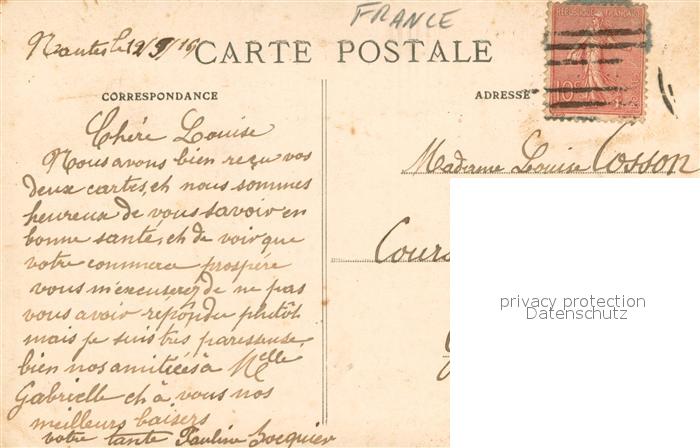 FRANCE
Nantes le 12/9/16
CARTE POSTALE
RÉPUBLIQUE FRANÇAISE
10 c
CORRESPONDANCE
ADRESSE
Chére Louise
Nous avons bien reçu vos
deux cartes, et nous sommes
heureux de vous savoir en
bonne santé, et de voir que
votre commerce prospére
vous m'excuserez de ne pas
vous avoir répondu plutôt
mais je suis très paresseuse.
bien nos amitiées à Melle
Gabrielle et à vous nos
meilleurs baisers
votre tante Pauline
Madame Louise Cosson
Cours
privacy protection
Datenschutz